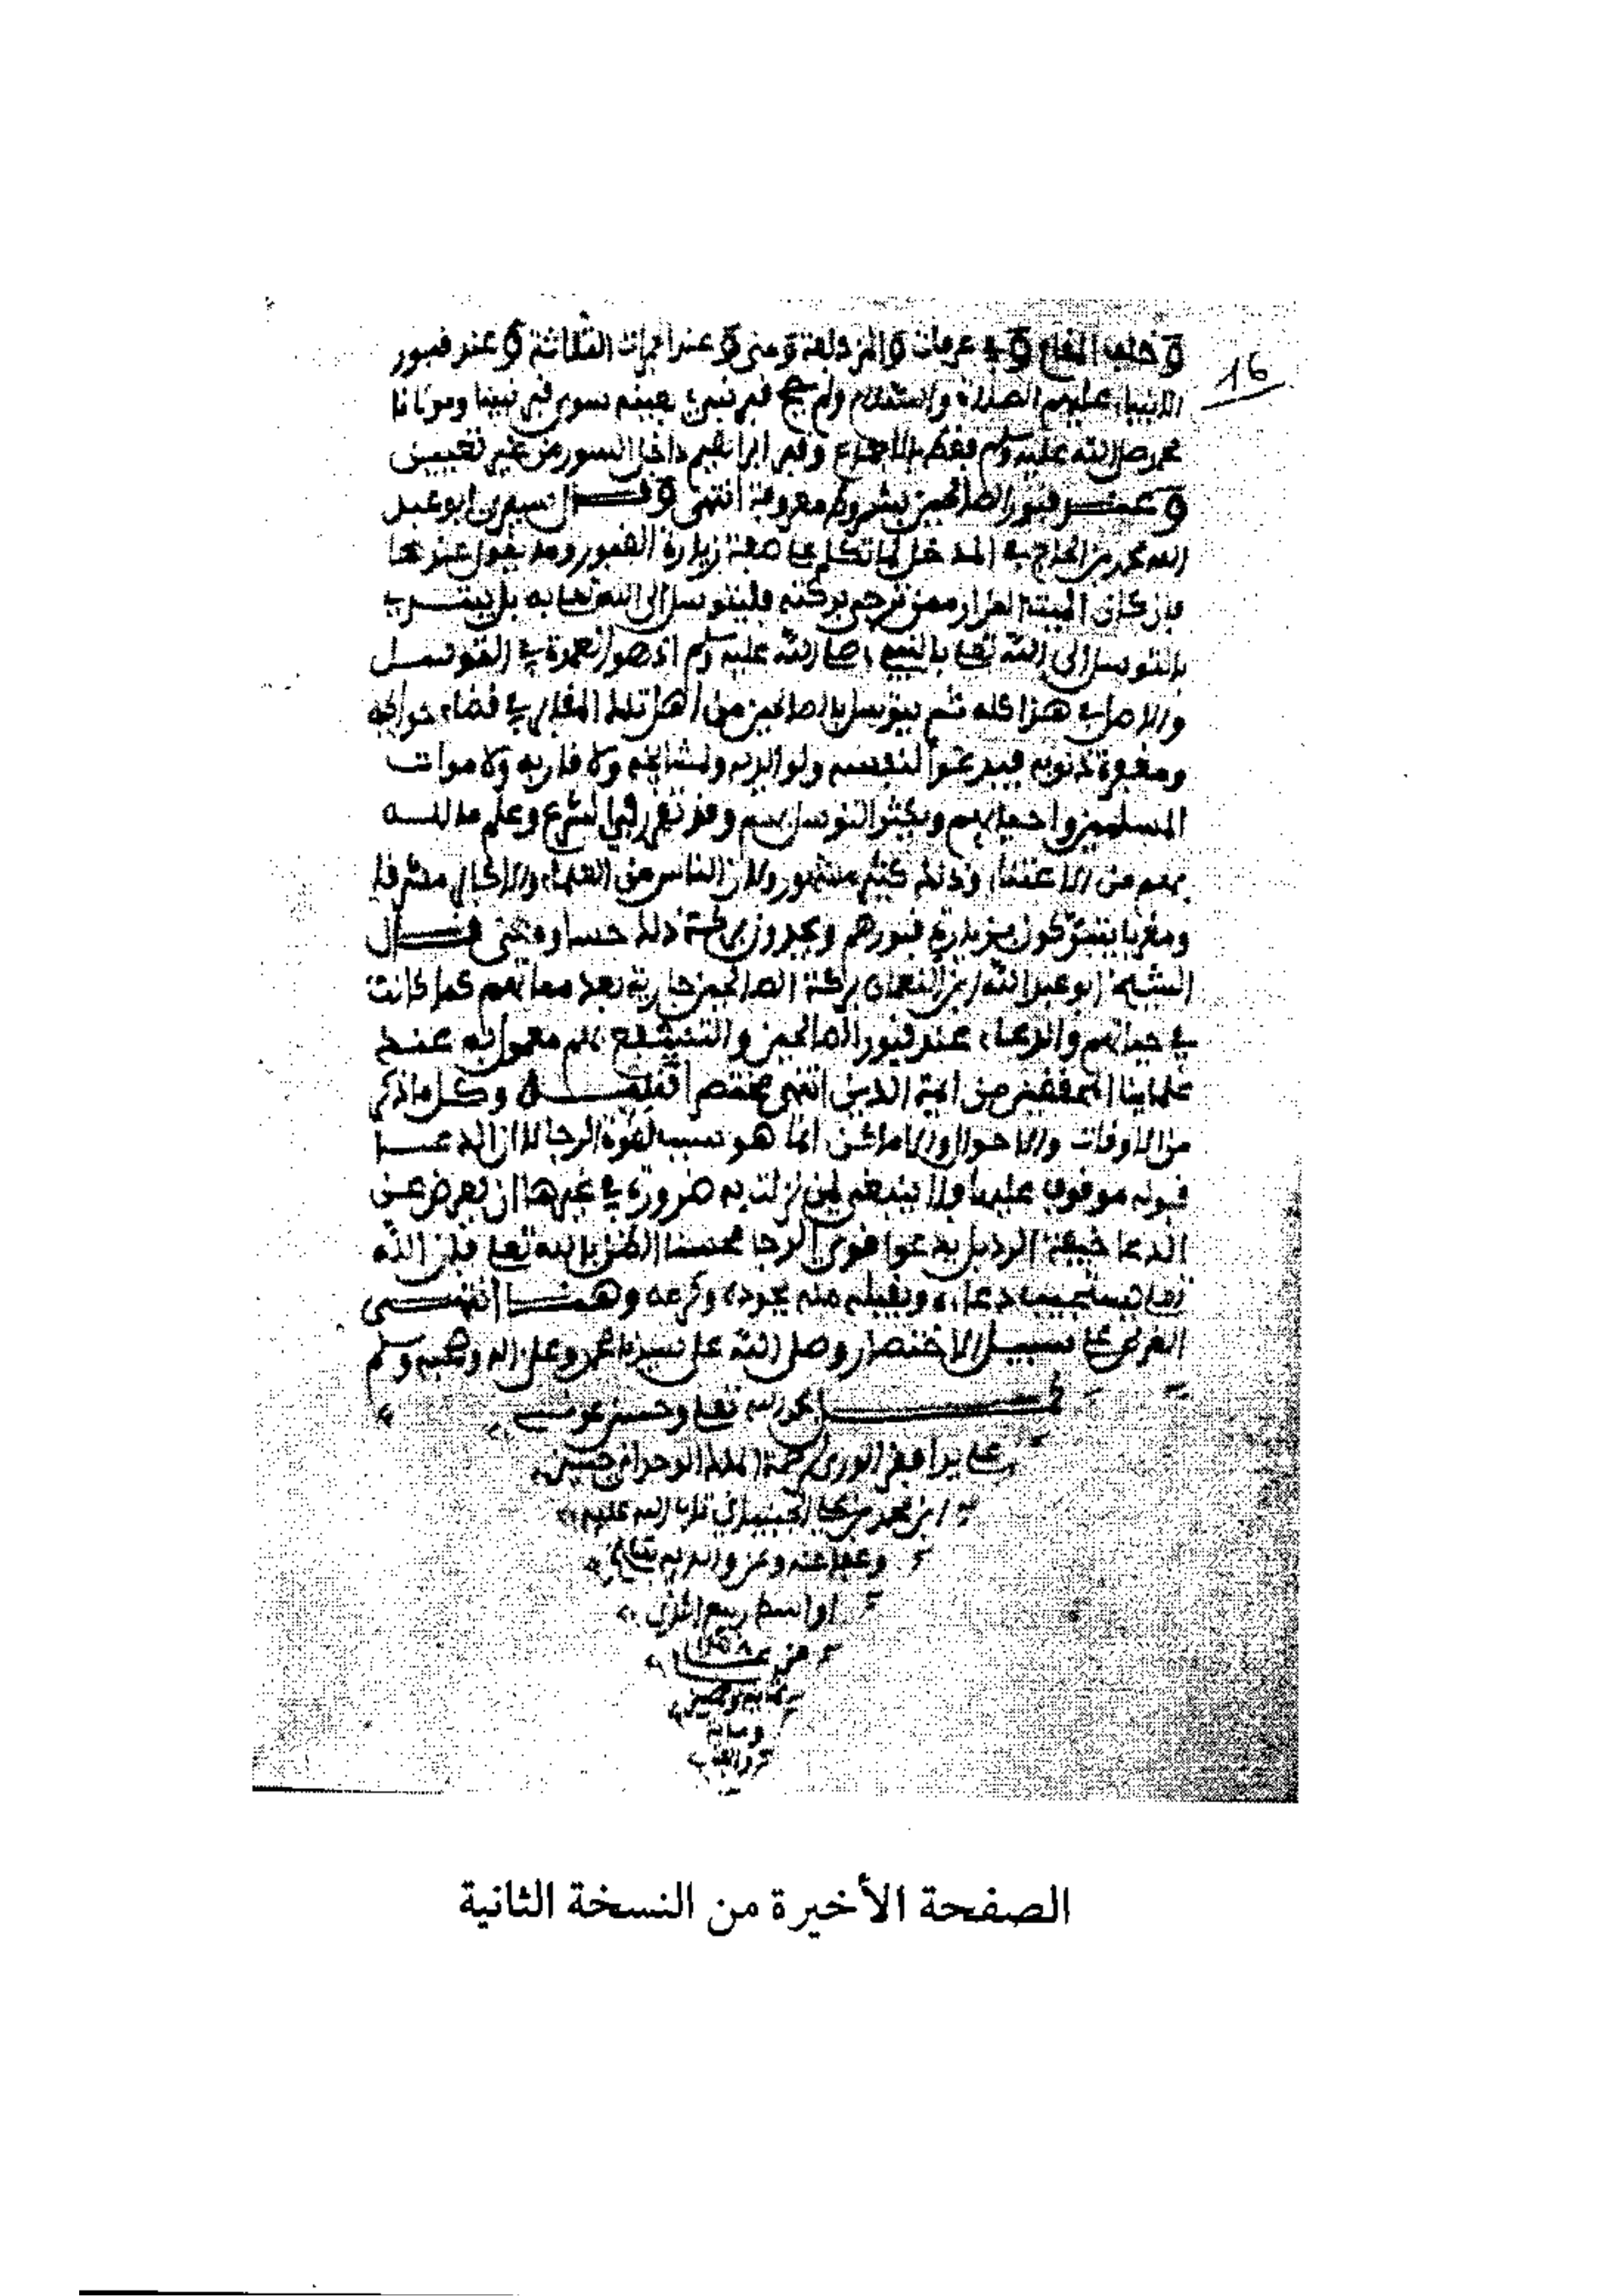 وخلف المقام وفي عرفات والمزدلفة ومنى وعند الجمرات الثلاثة وعند قبور
16
الانبياء عليهم الصلاة والسلام ولم يصح قبر نبيء بعينه سوى قبر نبينا ومولانا
محمد صلى الله عليه وسلم فقط بالاجماع وقبر ابراهيم داخل السور من غير تعيين
وعند قبور الصالحين بشروط معروفة انتهى وقال سيدي ابو عبد
الله محمد بن الحاج في المدخل لما تكلم على صفة زيارة القبور وما يقول عندها
فان كان الميت المزار ممن ترجى بركته فليتوسل الى الله تعالى به بل يبتدي
بالتوسل الى الله تعالى بالنبي صلى الله عليه وسلم اذ هو العمدة في التوسل
والاصل في هذا كله ثم يتوسل بالصالحين من اهل تلك المقابر في قضاء حوائجه
ومغفرة ذنوبه فيدعوا لنفسه ولوالديه ولمشايخه ولاقاربه ولاموات
المسلمين واحيائهم ويكثر التوسل بهم وقد تقرر في الشرع وعلم ما لله
بهم من الاعتناء وذلك كثير مشهور ولازال الناس من العلماء والاكابر مشرقا
ومغربا يتبركون بزيارة قبورهم ويجدون بركة ذلك حسا ومعنى قال
الشيخ ابو عبد الله بن النعمان بركة الصالحين جارية بعد مماتهم كما كانت
في حياتهم والدعاء عند قبور الصالحين والتشفع بهم معمول به عند
علمائنا المحققين من ائمة الدين انتهى مختصرا قلت وكل ما ذكر
من الاوقات والاحوال والاماكن انما هو سبب لقوة الرجا لا ان الدعا
قبوله موقوف عليها ولا ينبغي لمن نزلت به ضرورة في غيرها ان يعرض عن
الدعا خيفة الرد بل يدعوا قوي الرجا محسنا الظن بالله تعالى فان الله
تعالى يستجيب دعاءه ويقبله منه بجوده وكرمه وهنا انتهى
الغرض على سبيل الاختصار وصلى الله على سيدنا محمد وعلى اله وصحبه وسلم
كمل بحمد الله تعالى وحسن عونه
على يد افقر الورى لرحمة الملك
ابن محمد بن تاب الله عليه
وعفا عنه وعن والديه
اواسط ربيع
من عام
ثمانية وخمسين
وماية
الصفحة الأخيرة من النسخة الثانية